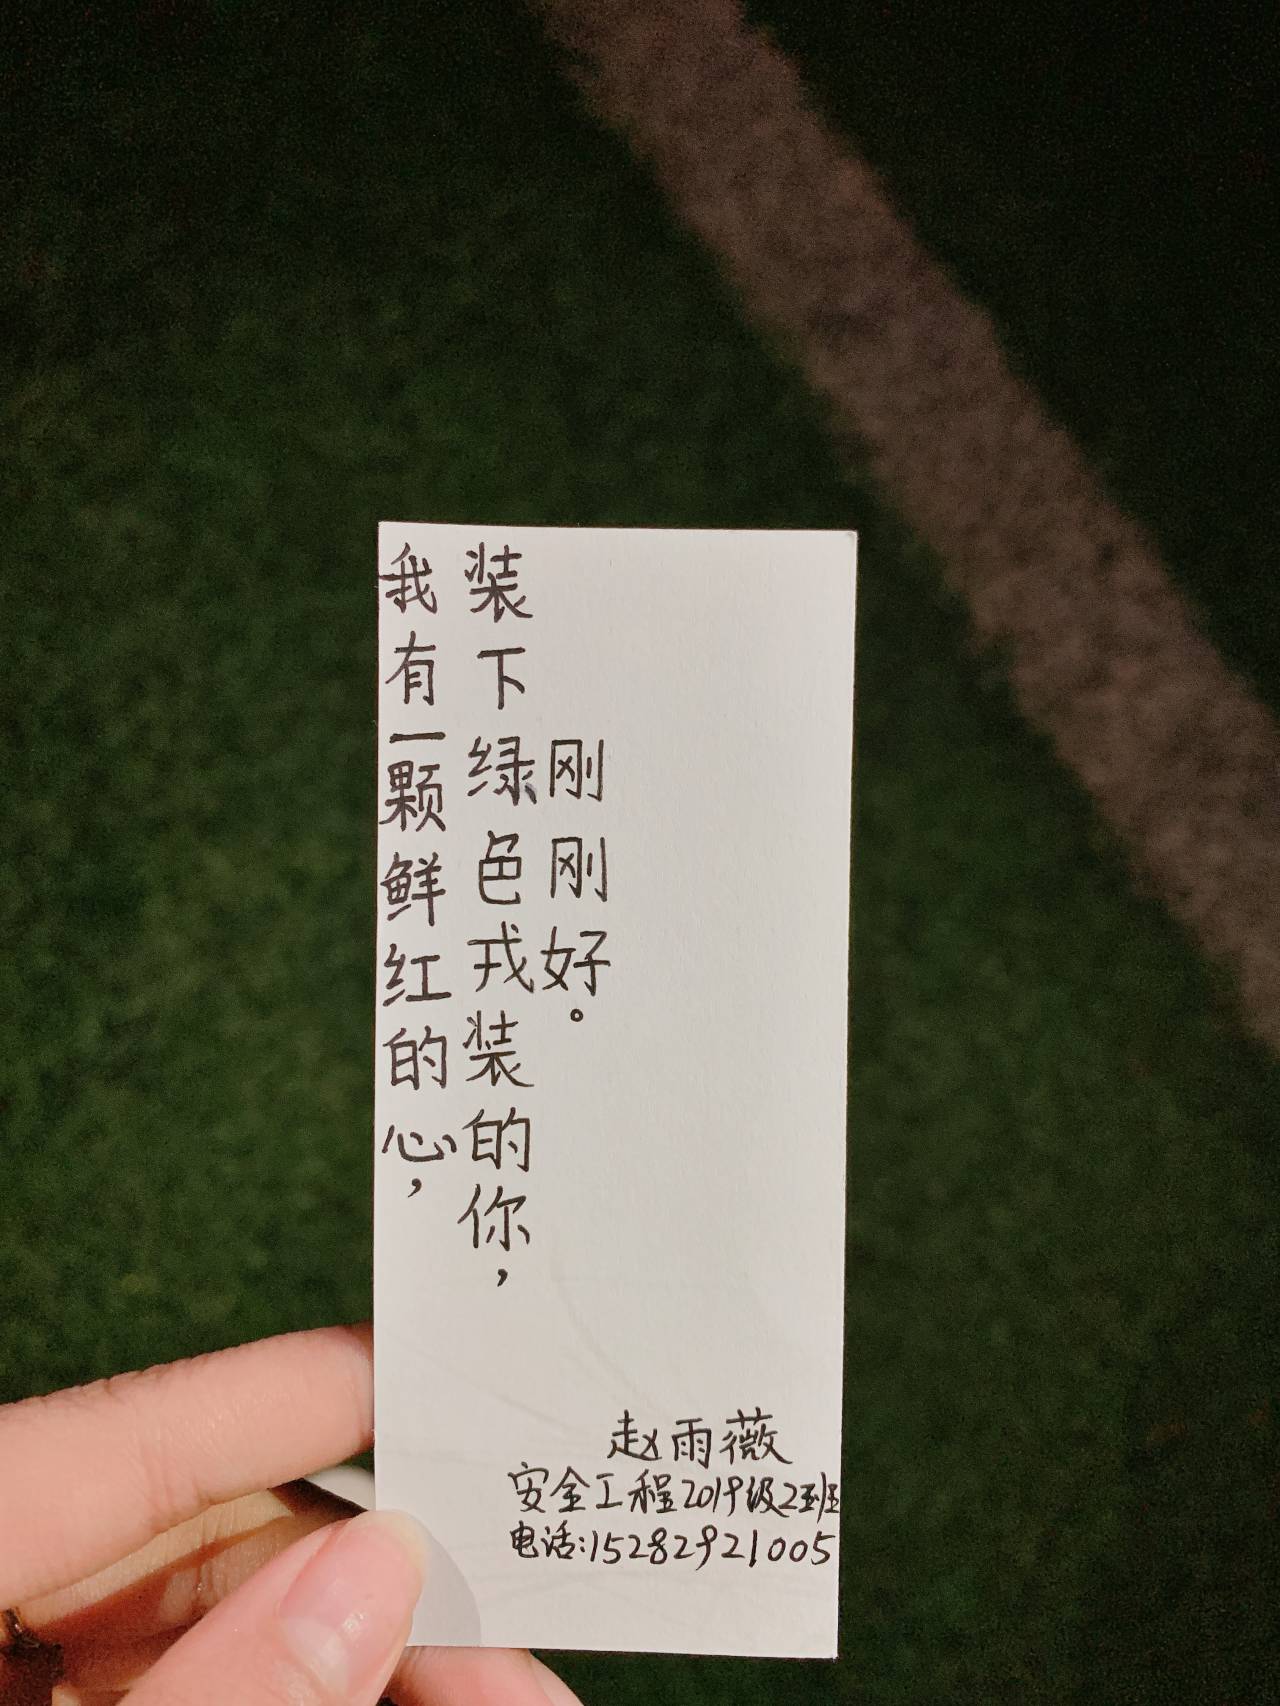 我有一颗鲜红的心，
装下绿色戎装的你，
刚刚好。
赵雨薇
安全工程2019级2班
电话:15282921005